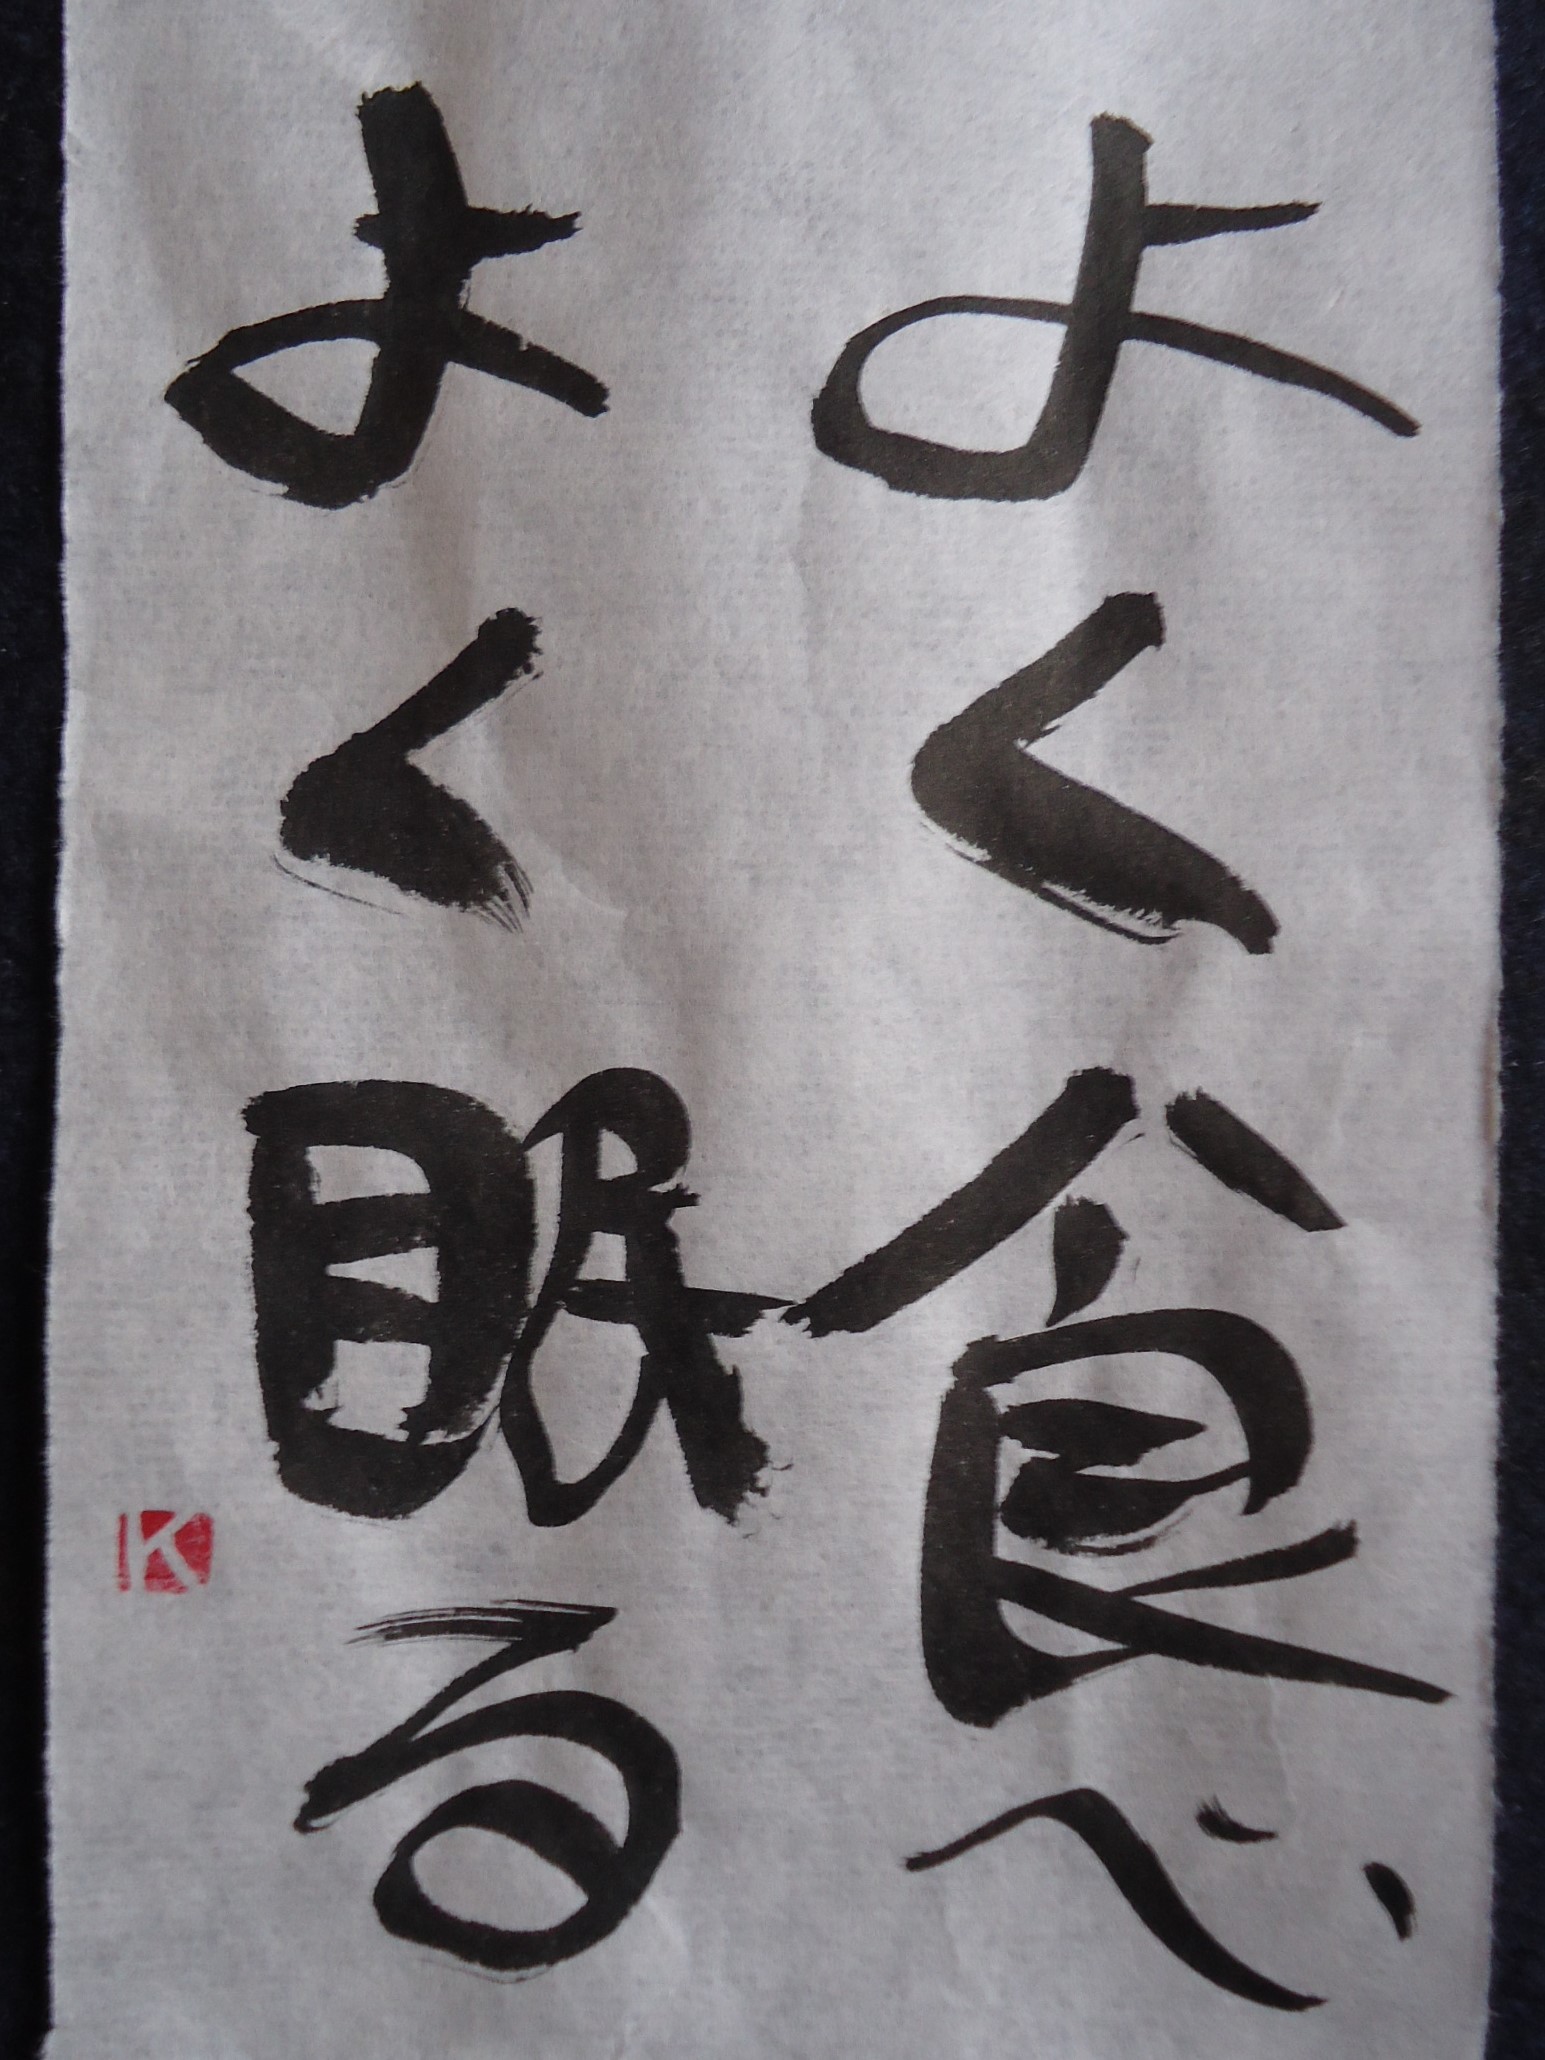 よく食べ
よく眠る
K